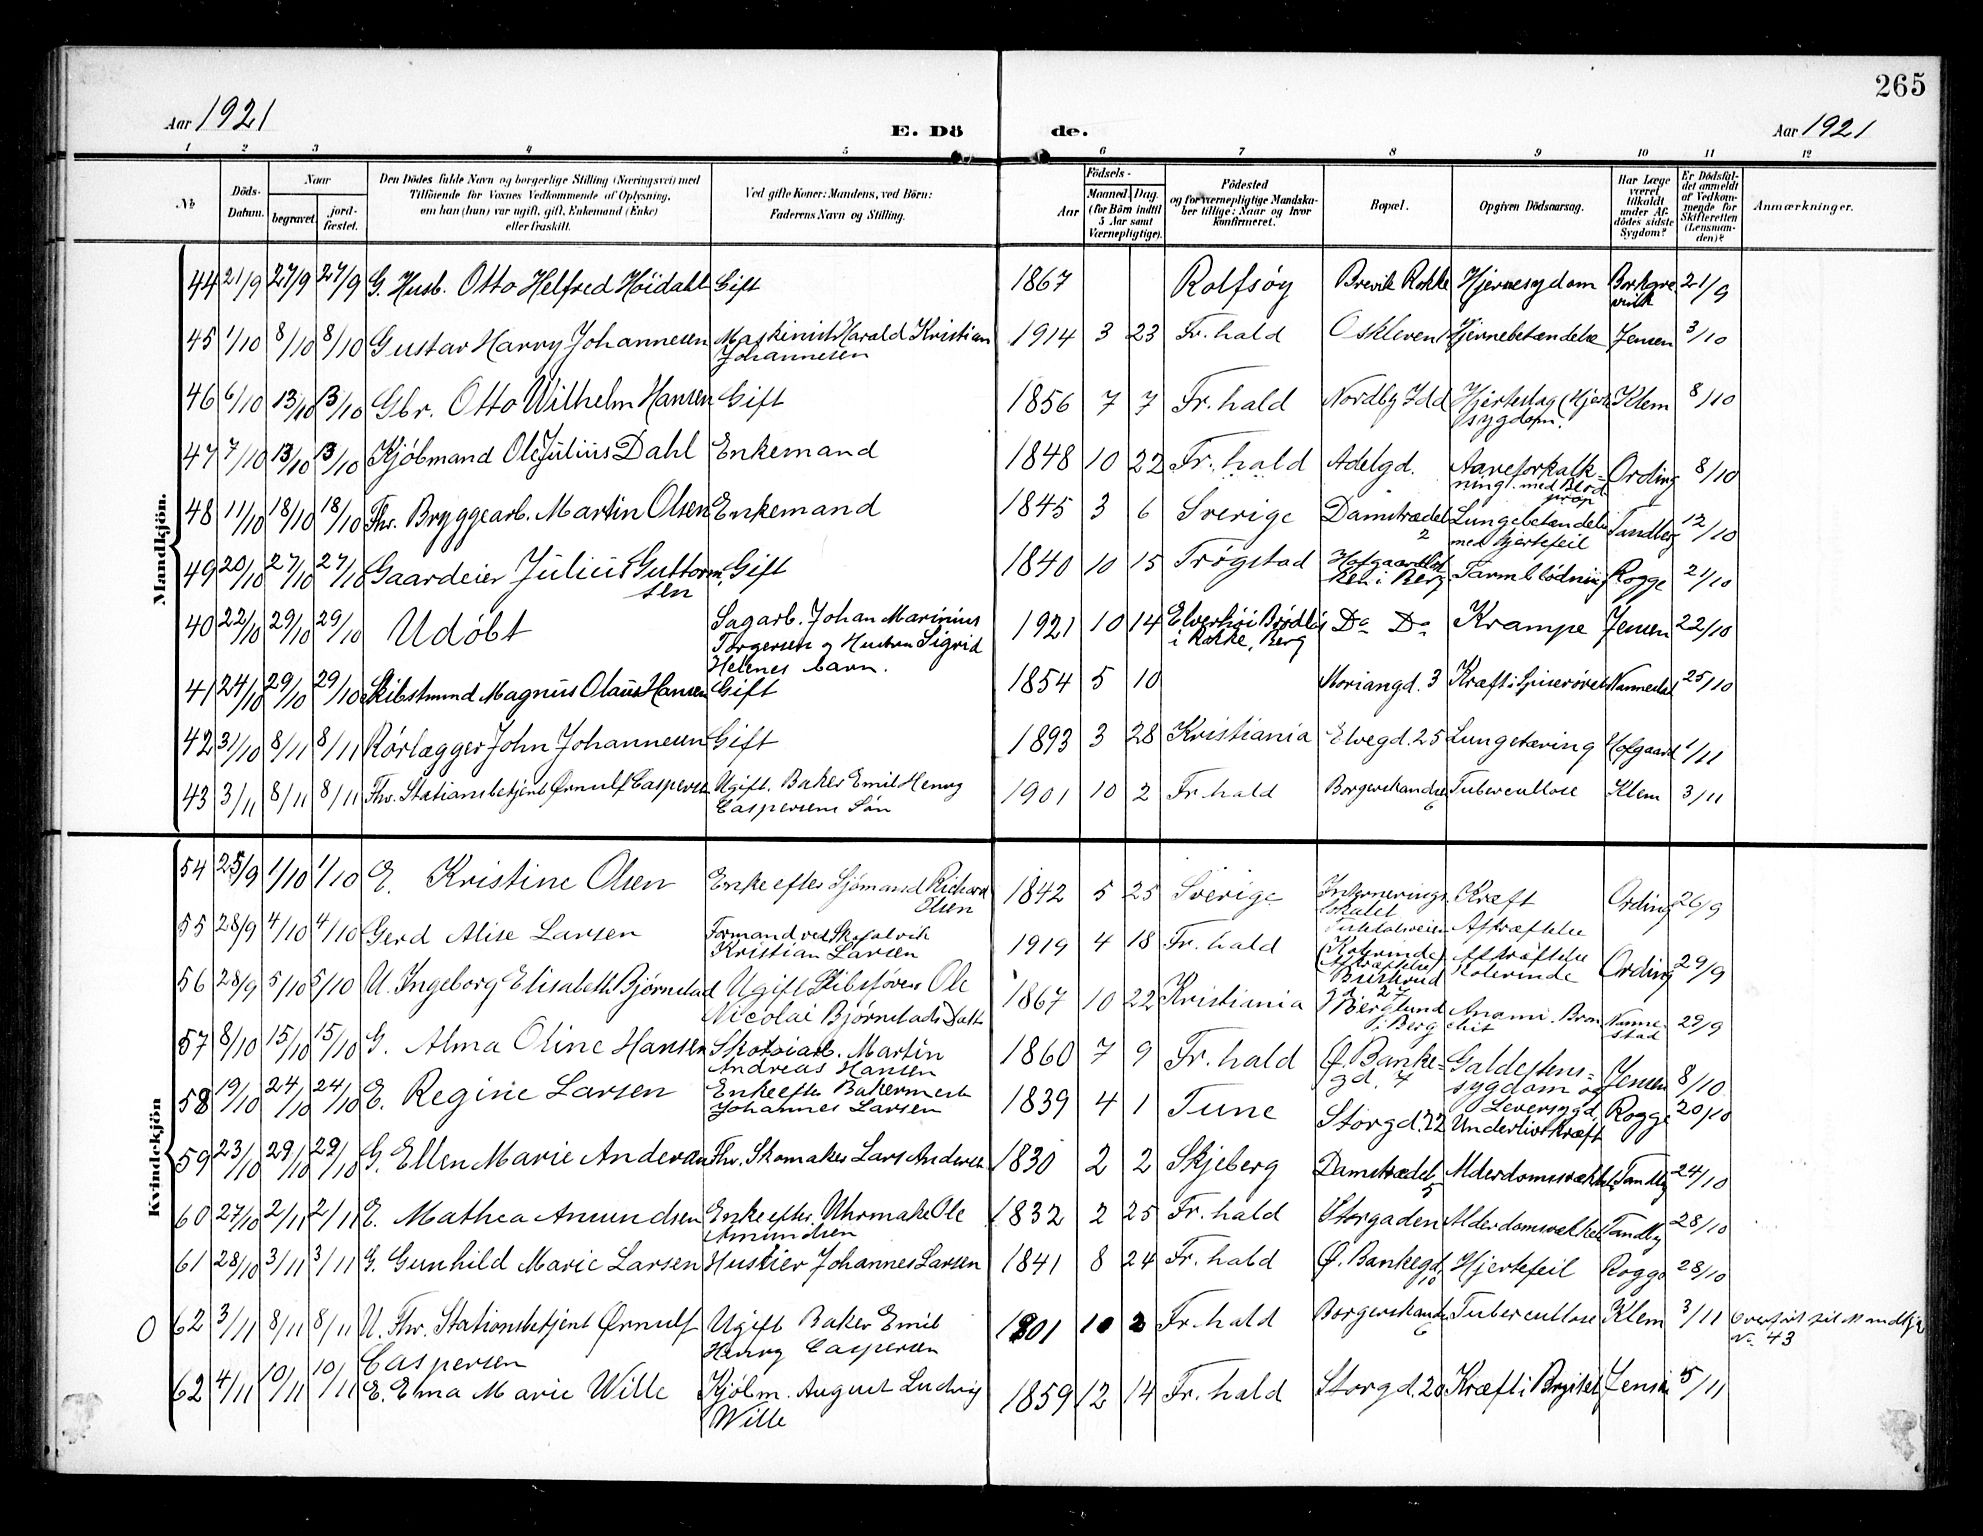 265
Aar 1921
E. Dö
de.
Aar 1921
1 2 3 4 5 6 7 8 9 10 11 12
No
Döds-
Datum.
Naar
begravet.
jord-
fæstet.
Den Dödes fulde Navn og borgerlige Stilling (Næringsvei) med
Tilföiende for Voxnes Vedkommende af Oplysning,
om han (hun) var ugift, gift, Enkemand (Enke)
eller fraskilt.
Ved gifte Koner: Mandens, ved Börn:
Faderens Navn og Stilling.
Födsels-
Aar
Maaned.
Dag.
(for Börn indtil
5 Aar samt
Værnepligtige).
Födested
og for værnepligtige Mandska-
ber tillige: Naar og hvor
konfirmeret.
Bopæl.
Opgiven Dödsaarsag.
Har Læge
været
tilkaldt
under Af-
dödes sidste
Sygdom?
Er Dödsfal-
det anmeldt
af Vedkom-
mende for
Skifteretten
(Lensman-
den)?
Anmærkninger.
Mandkjön.
44 21/9 27/9 27/9 G. Husb. Otto Helfred Höidahl Gift 1867 Rolfsøy Brevik Rokke Hjernesygdom Borkgre
vink 21/9
45 1/10 8/10 8/10 Gustav Harry Johannesen Maskinist Harald Kristian
Johannesen 1914 3 23 Fr. hald Oskleven Hjernebetændelse Jensen 3/10
46 6/10 13/10 13/10 Gbr. Otto Wilhelm Hansen Gift 1856 7 7 Fr. hald Nordby Idd Hjerteslag (Hjerte
sygdom. Klem 8/10
47 7/10 13/10 13/10 Kjöbmand Ole Julius Dahl Enkemand 1848 10 22 Fr. hald Adelgd. Aareforkalk-
ning med Blod
prop Ording 8/10
48 11/10 18/10 18/10 Fhv. Bryggearb. Martin Olsen Enkemand 1845 3 6 Sverige Damstrædet
2 Lungebetændelse
med Hjertefeil Tandberg 12/10
49 20/10 27/10 27/10 Gaardeier Julius Guttorm
sen Gift 1840 10 15 Trøgstad Hofgaardløk
ken i Berg Tarmblödning Rogge 21/10
40 22/10 29/10 29/10 Udøbt Sagarb. Johan Marinius
Torgersen og Hustru Sigrid
Helenes barn. 1921 10 14 Elverhöi Brödløs
i Rokke, Berg Do Do Krampe Jensen 22/10
41 24/10 29/10 29/10 Skibstmmd Magnus Olaus Hansen Gift 1854 5 10 Storiangd. 3 Kræft i Spiserøret Nannestad 25/10
42 31/10 8/11 8/11 Rörlægger John Johannesen Gift 1893 3 28 Kristiania Elvegd. 25 Lungetæring Hofgaard 1/11
43 3/11 8/11 8/11 Fhv. Stationsbetjent Ørnulf Caspersen Ugift. Baker Emil Henry
Caspersens Søn 1901 10 2 Fr. hald Borgerskandse
6 Tuberculose Klem 3/11
Kvindekjön
54 25/9 1/10 1/10 E. Kristine Olsen Enke efter Sjömand Richard
Olsen 1842 5 25 Sverige Internerings
lokalet Kræft Ording 26/9
55 28/9 4/10 4/10 Gerd Alise Larsen Formand ved
Kristian Larsen 1919 4 18 Fr. hald Tistedalsveien
(Kolerinde)
Afkræftelse Afkræftelse
Afkræftelse
Kolerinde Ording 29/9
56 28/9 5/10 5/10 U. Ingeborg Elisabeth Bjørnstad Ugift Skibsfører Ole
Nicolai Bjørnstads Datter 1867 10 22 Kristiania
gd 27
Bjerglund
i Berg Anæmi. Bron
chit Nanne-
stad 29/9
57 8/10 15/10 15/10 G. Alma Oline Hansen Skotöiarb. Martin
Andreas Hansen 1860 7 9 Fr. hald Ø. Banke-
gd. 7 Galdestens-
sygdom og
Leversygd. Jensen 8/10
58 19/10 24/10 24/10 E. Regine Larsen Enke efter Bakermester
Johannes Larsen 1839 4 1 Tune Storgd. 22 Underlivskræft Rogge 20/10
59 23/10 29/10 29/10 G. Ellen Marie Andersen Fhv. Skomaker Lars Andersen 1830 2 2 Skjeberg Damstrædet
5 Alderdomssvækkelse Tandbg 24/10
60 27/10 2/11 2/11 E. Mathea Amundsen Enke efter Uhrmaker Ole
Amundsen 1832 2 25 Fr. hald Storgaden Alderdomsvækkel Tandbg 28/10
61 28/10 3/11 3/11 G. Gunhild Marie Larsen Huseier Johannes Larsen 1841 8 24 Fr. hald Ø. Bankegd.
10 Hjertefeil Rogge 28/10
O 62 3/11 8/11 8/11 U. Fhv. Stationsbetjent Ørnulf
Caspersen Ugift Baker Emil
Henry Caspersen 1901 10 2 Fr. hald Borgerskandse
6 Tuberculose Klem 3/11 Overført til Mandkjø
No 43
62 4/11 10/11 10/11 E. Elna Marie Wille Kjöbm. August Ludvig
Wille 1859 12 14 Fr. hald Storgd. 20 Kræft i Brystet Jensen 5/11